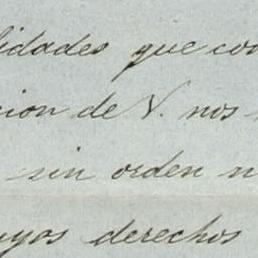 lidades que con
cion de V. nos
sin orden n
uyos derechos